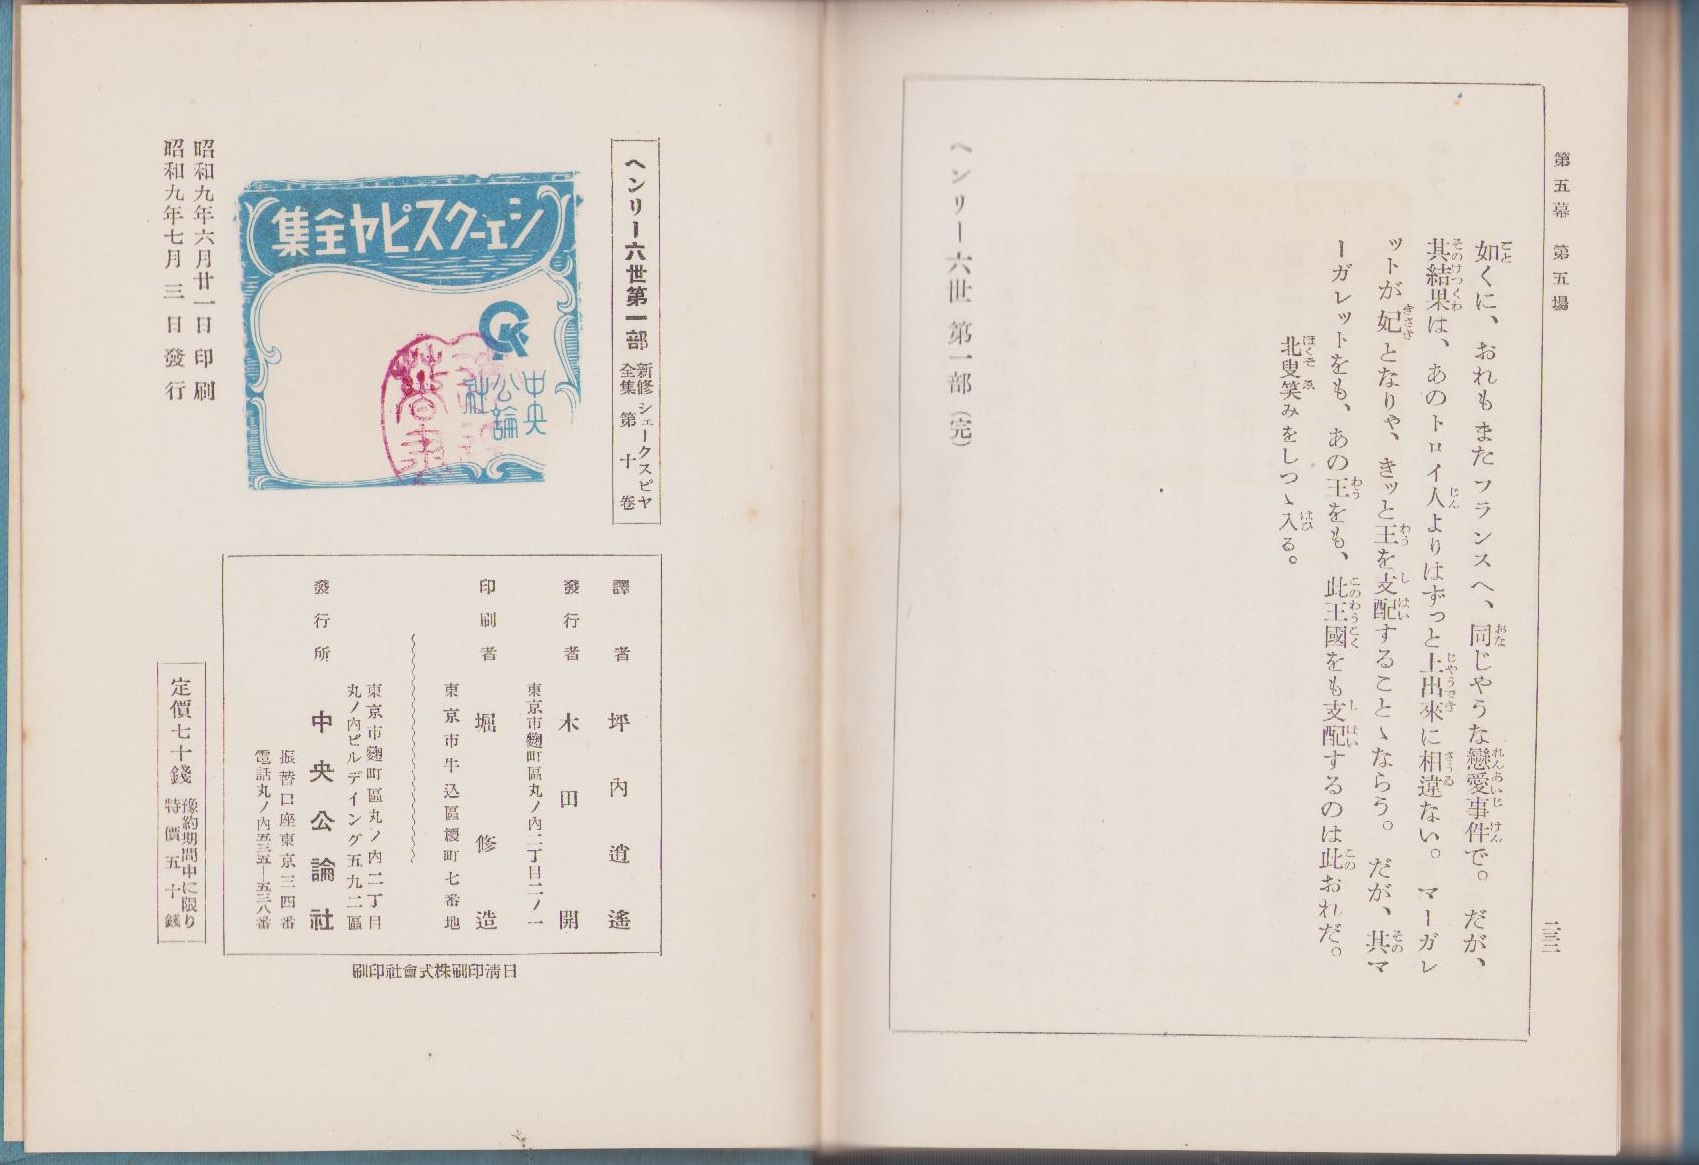 第五幕 第五場
二三三
如くに、おれもまたフランスへ、同じやうな戀愛事件で。だが、
其結果は、あのトロイ人よりはずっと上出來に相違ない。マーガレ
ットが妃となりや、きッと王を支配することゝならう。だが、其マ
ーガレットをも、あの王をも、此王國をも支配するのは此おれだ。
北叟笑みをしつゝ入る。
ヘンリー六世 第一部 (完)
ヘンリー六世第一部 新修シェークスピヤ全集 第十卷
シェークスピヤ全集
中央公論社
昭和九年六月廿一日印刷
昭和九年七月三日發行
譯者 坪內逍遙
發行者 木田開
東京市麴町區丸ノ內二丁目二ノ一
印刷者 堀修造
東京市牛込區榎町七番地
東京市麴町區丸ノ內二丁目
丸ノ內ビルデイング五九二區
發行所 中央公論社
振替口座東京三四番
電話丸ノ內五三五—五三八番
日淸印刷株式會社印刷
定價七十錢
豫約期間中に限り
特價五十錢